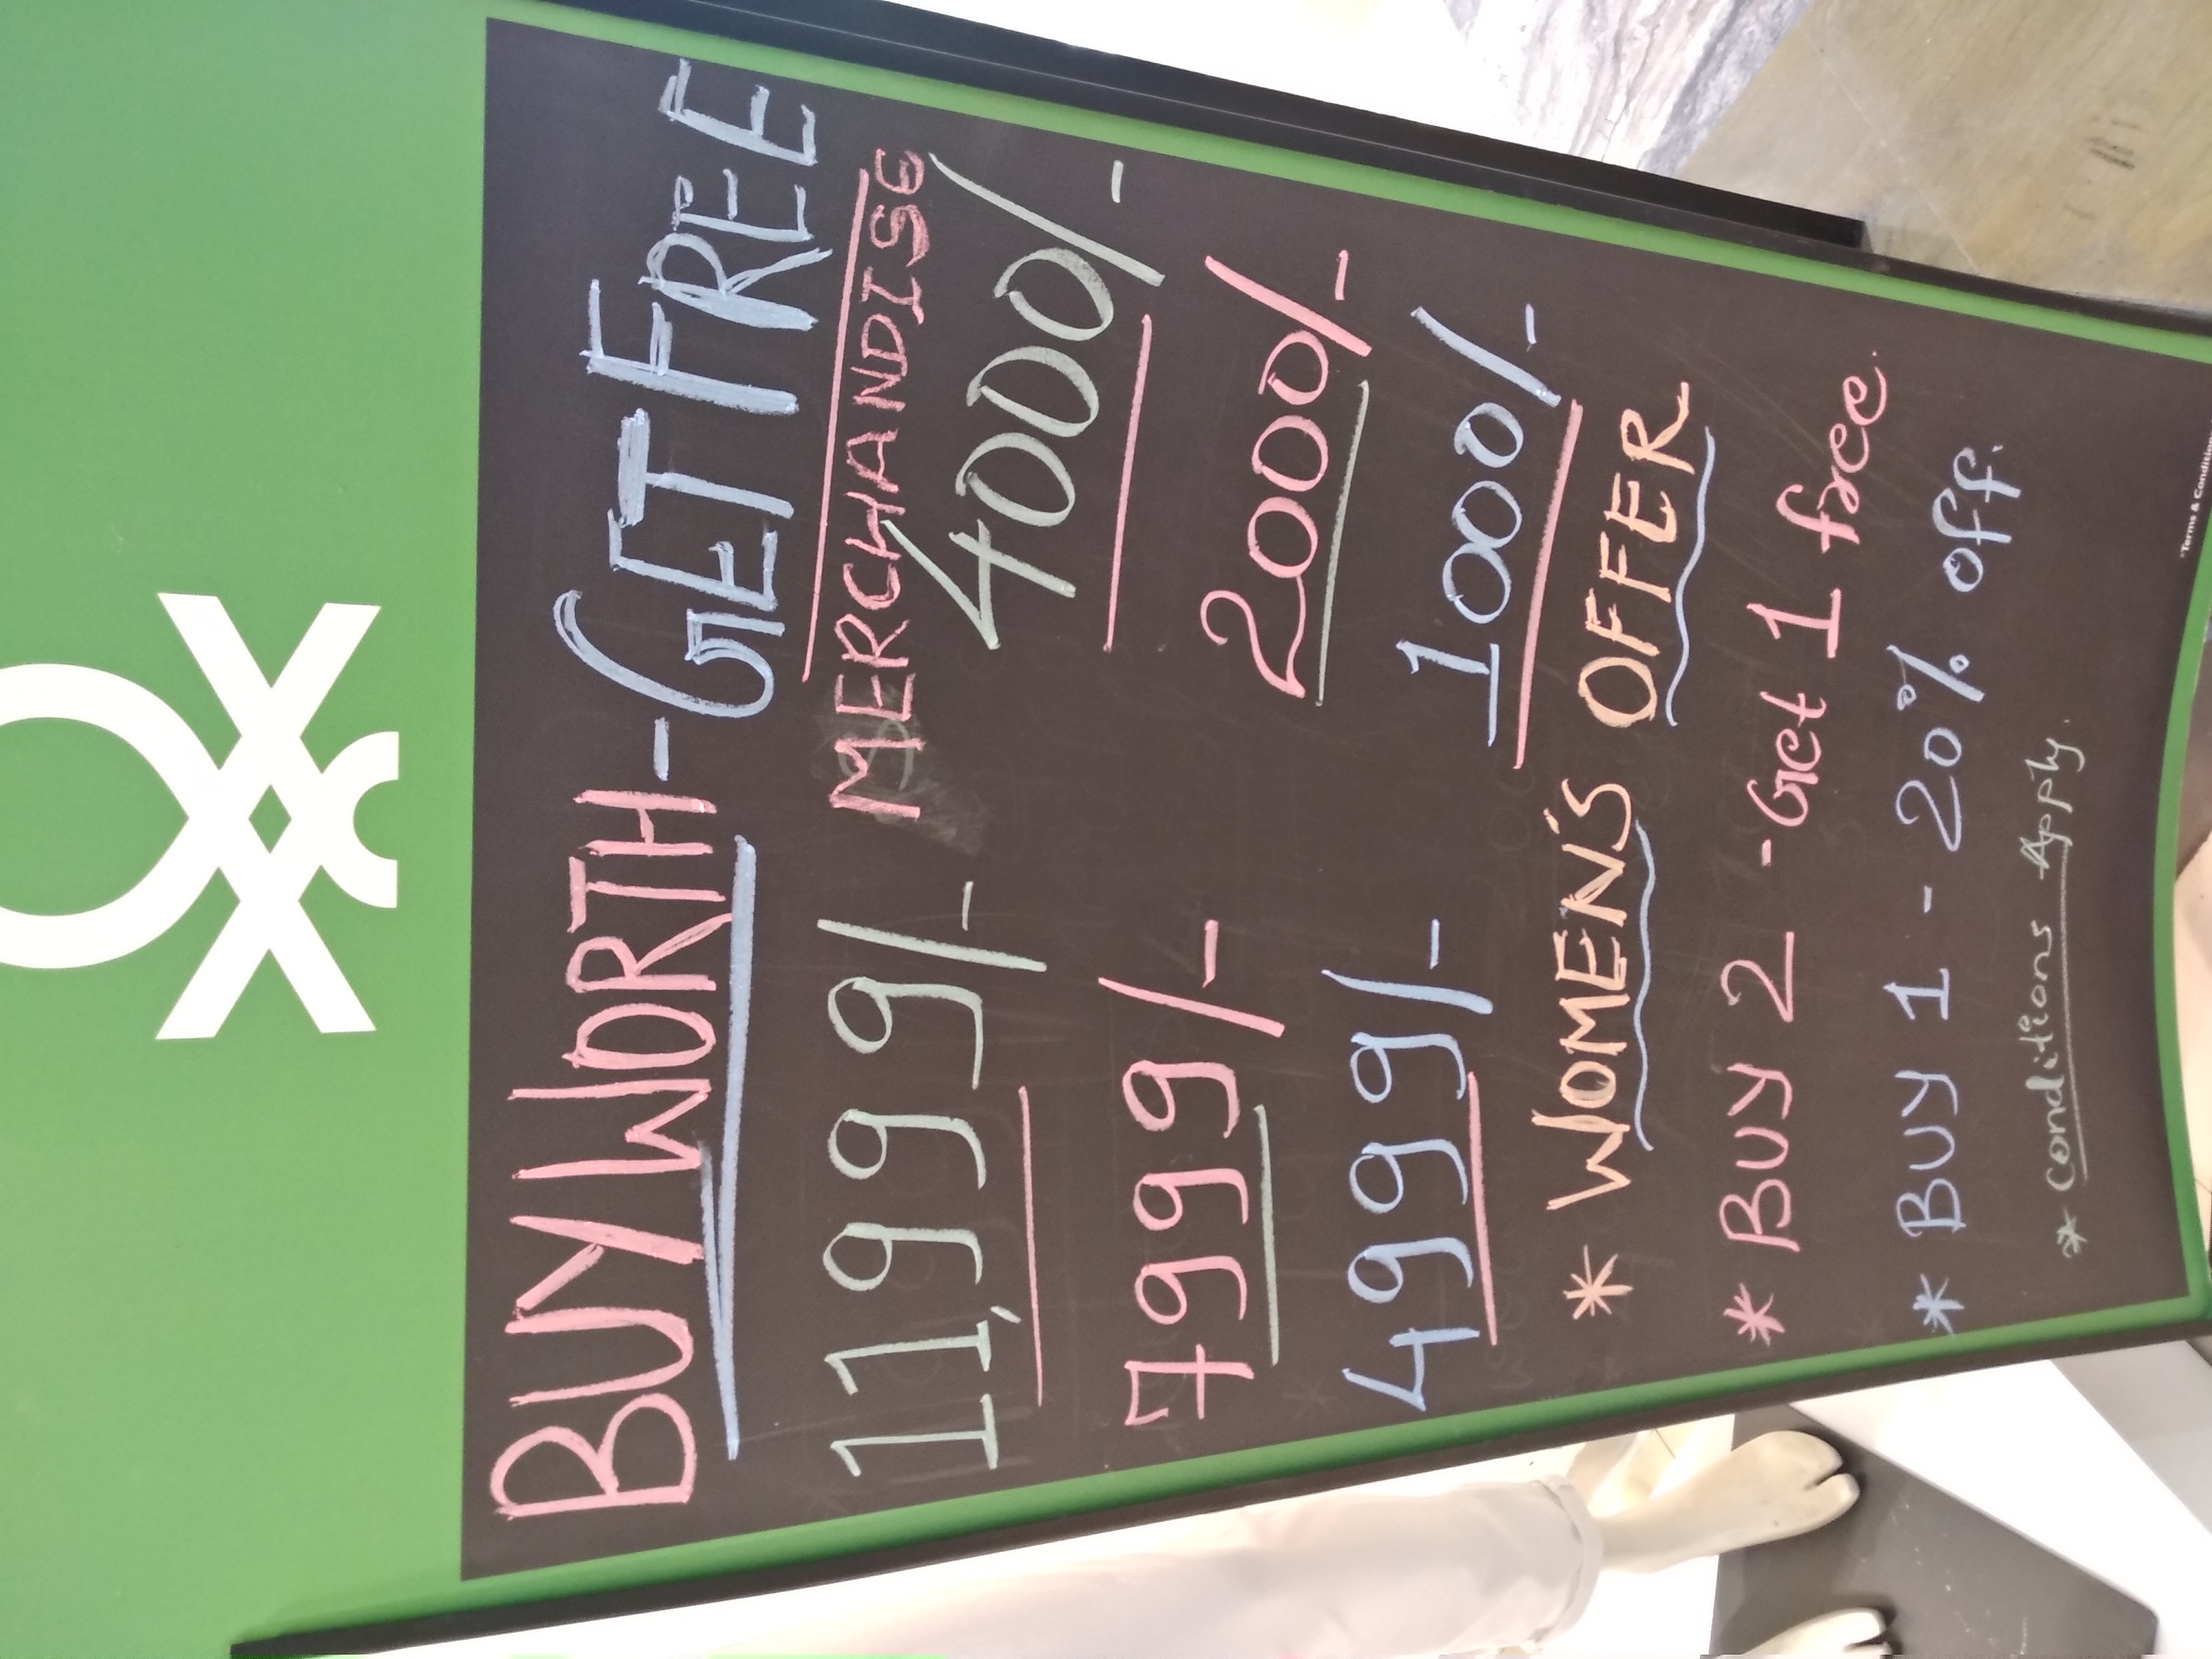 BUY WORTH - GET FREE
MERCHANDISE
11,999/- 4000/-
7999/- 2000/-
4999/- 1000/-
* WOMEN'S OFFER
* BUY 2 - Get 1 free.
* BUY 1 - 20% off.
* Conditions Apply.
*Terms & Condition